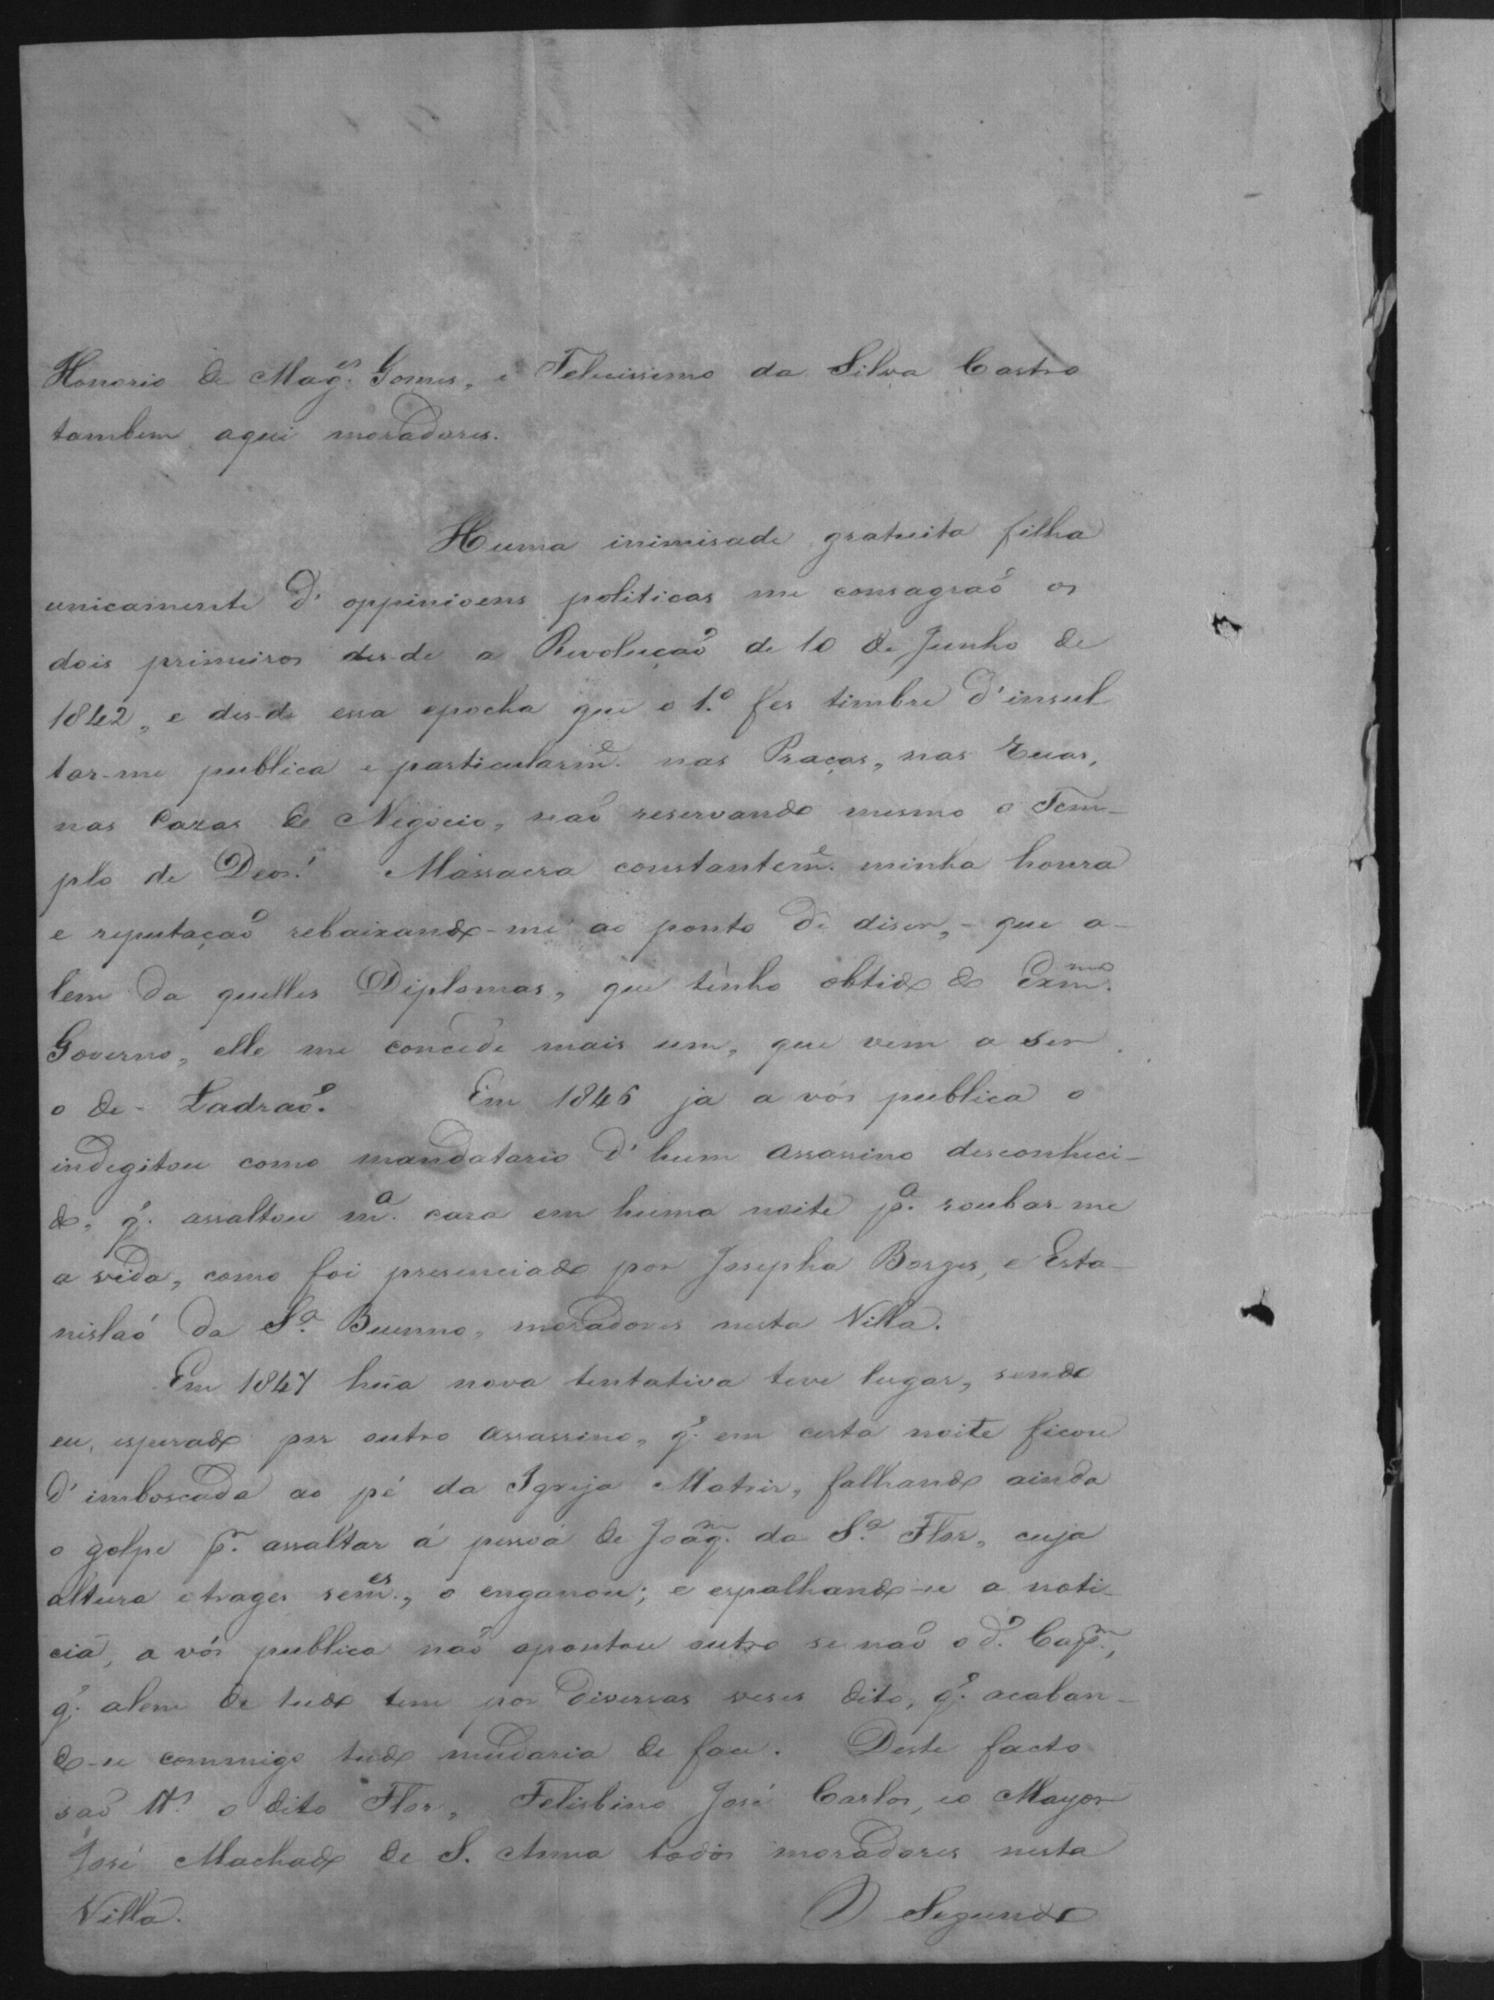 Honorio de Mag.es Gomes, e Felicissimo da Silva Castro
tambem aqui moradores.
Huma inimisade gratuita filha
unicamente d'oppinioens politicas me consagraõ os
dois primeiros des-de a Revoluçaõ de 10 de Junho de
1842, e des-de essa epocha que o 1.º fes timbre d'insul
tar-me publica e particularm.e nas Praças, nas Ruas,
nas Cazas de Negocio, naõ reservando mesmo o Tem-
plo de Deos! Massacra constantem.e minha honra
e reputaçaõ rebaixando-me ao ponto de diser, - que a-
lem da quelles Diplomas, que tenho obtido do Exm.mo
Governo, elle me concede mais um, que vem a ser
o de - Ladraõ. Em 1846 ja a vós publica o
indegitou como mandatario d'hum assassino desconheci-
do, q.e assaltou m.a casa em huma noite p.a roubar-me
a vida, como foi presenciado por Josepha Borges, e Esta-
nisláo da S.a Buenno, moradores nesta Villa.
Em 1847 hũa nova tentativa teve lugar, sendo
eu esperado por outro assassino, q.e em certa noite ficou
d'imboscada ao pé da Igreja Matris, falhando ainda
o golpe p.r assaltar á pessoa de Joaq.m da S.a Flor, cuja
altura e trages sem.es, o enganou; e espalhando-se a noti-
cia, a vós publica naõ apontou outro se naõ o d.o Cap.m,
q.e alem de tudo tem por diversas veses dito, q.e acaban-
do-se commigo tudo mudaria de face. Deste facto
saõ tt.as o dito Flor, Felisbino José Carlos, e o Mayor
José Machado de S. Anna todos moradores nesta
Villa. O Segundo